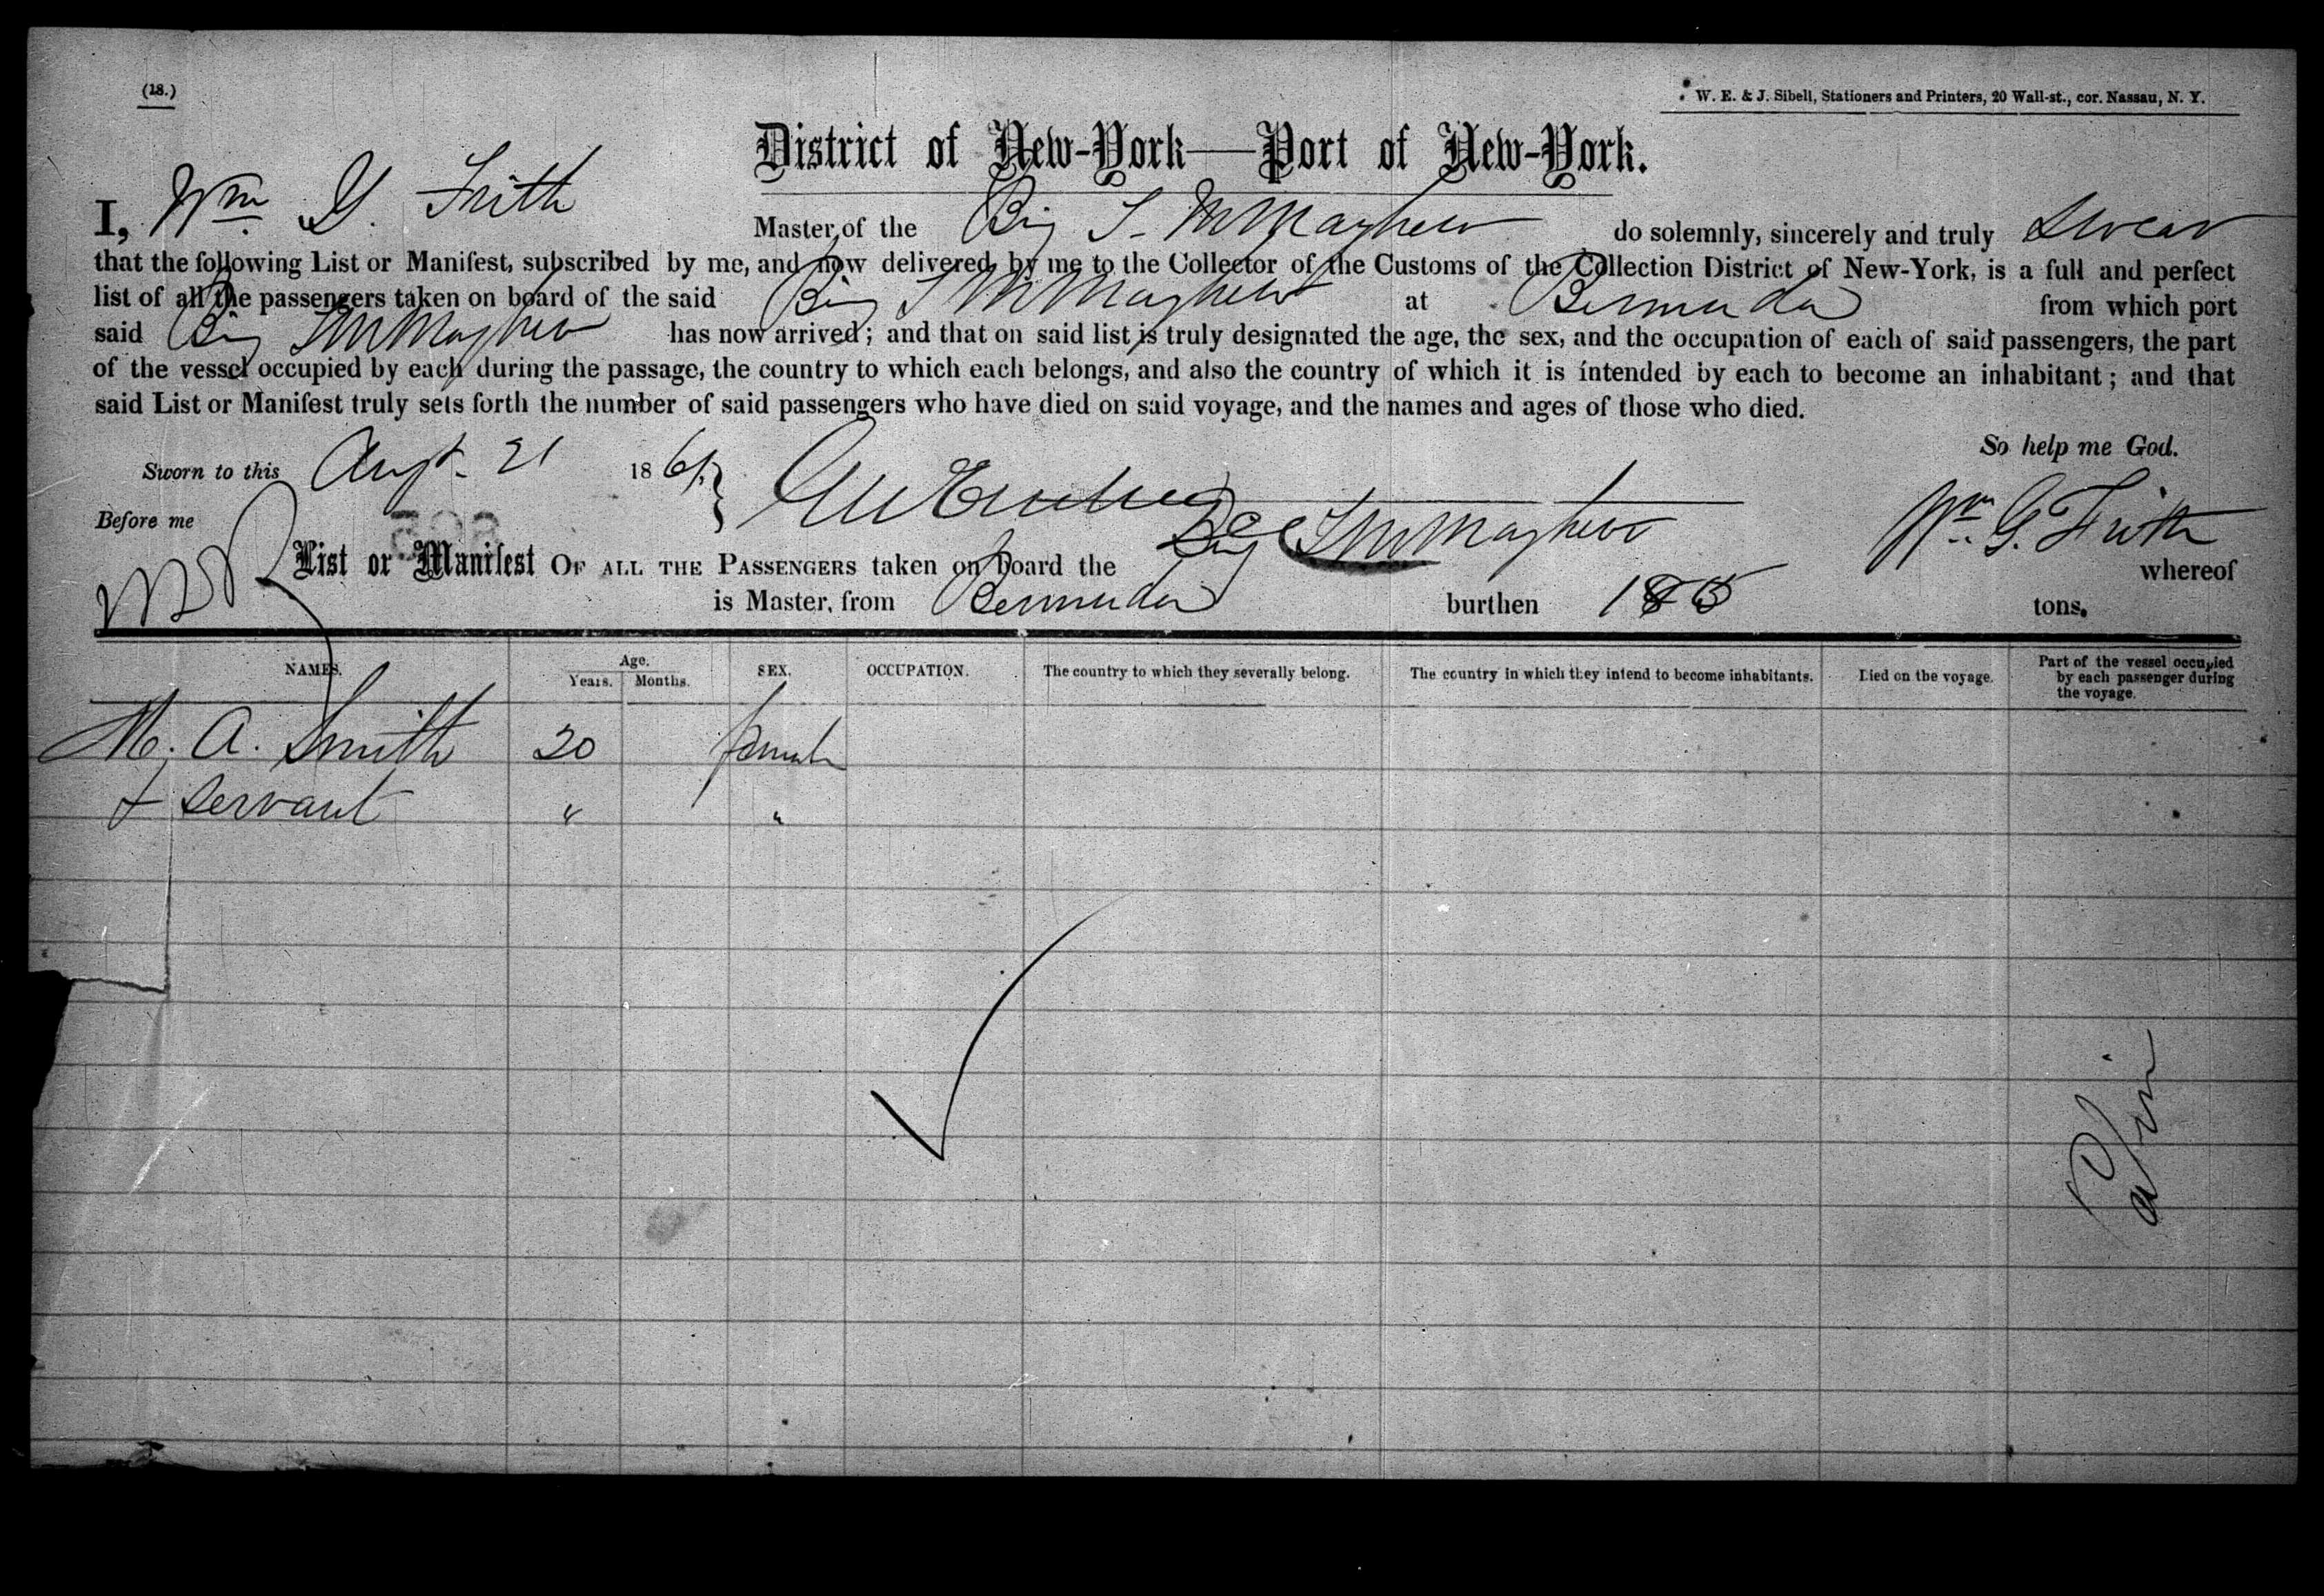 (18.)
W. E. & J. Sibell, Stationers and Printers, 20 Wall-st., cor. Nassau, N. Y.
District of New-York—Port of New-York.
I, Wm. G. Frith Master of the Brig T. M. Mayhew do solemnly, sincerely and truly Swear
that the following List or Manifest, subscribed by me, and now delivered by me to the Collector of the Customs of the Collection District of New-York, is a full and perfect
list of all the passengers taken on board of the said Brig T M Mayhew at Bermuda from which port
said Brig T M Mayhew has now arrived; and that on said list is truly designated the age, the sex, and the occupation of each of said passengers, the part
of the vessel occupied by each during the passage, the country to which each belongs, and also the country of which it is intended by each to become an inhabitant; and that
said List or Manifest truly sets forth the number of said passengers who have died on said voyage, and the names and ages of those who died.
So help me God.
Sworn to this Augt. 21 1861
Before me
Wm. G. Frith
List or Manifest OF ALL THE PASSENGERS taken on board the Brig T M Mayhew whereof
is Master, from Bermuda burthen tons.
NAMES. Age. Years. Months. SEX. OCCUPATION. The country to which they severally belong. The country in which they intend to become inhabitants. Died on the voyage. Part of the vessel occupied by each passenger during the voyage.
M. A. Smith 20 female
& Servant " "